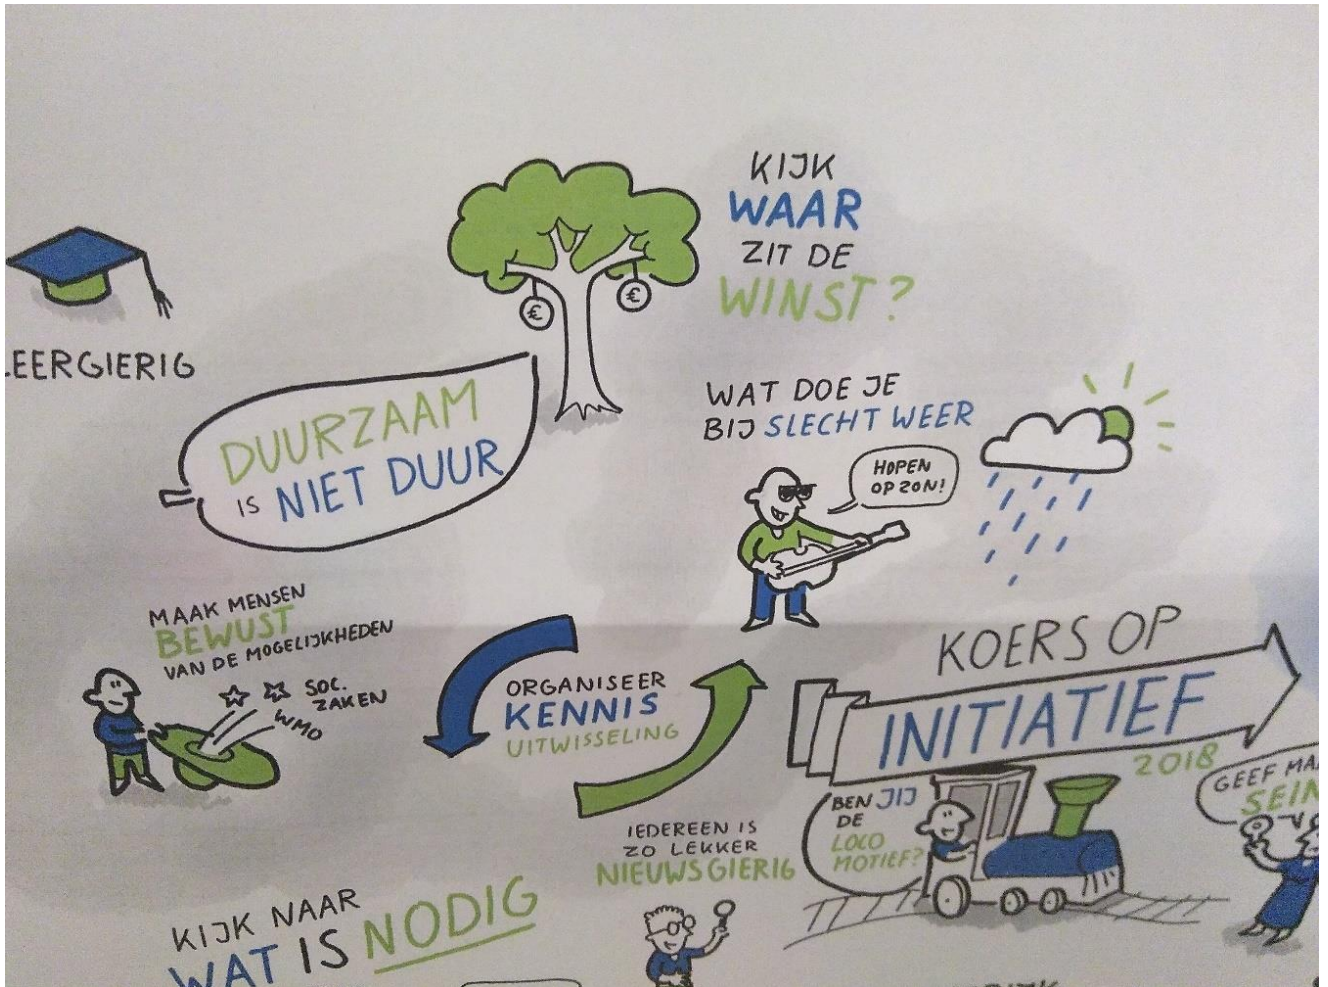 KIJK
WAAR
ZIT DE
WINST?
€
€
LEERGIERIG
DUURZAAM
IS NIET DUUR
WAT DOE JE
BIJ SLECHT WEER
HOPEN
OP ZON!
MAAK MENSEN
BEWUST
VAN DE MOGELIJKHEDEN
SOC.
ZAKEN
WMO
ORGANISEER
KENNIS
UITWISSELING
KOERS OP
INITIATIEF
2018
BEN JIJ
DE
LOCO
MOTIEF?
GEEF MA
SEIN
IEDEREEN IS
ZO LEKKER
NIEUWSGIERIG
KIJK NAAR
WAT IS NODIG